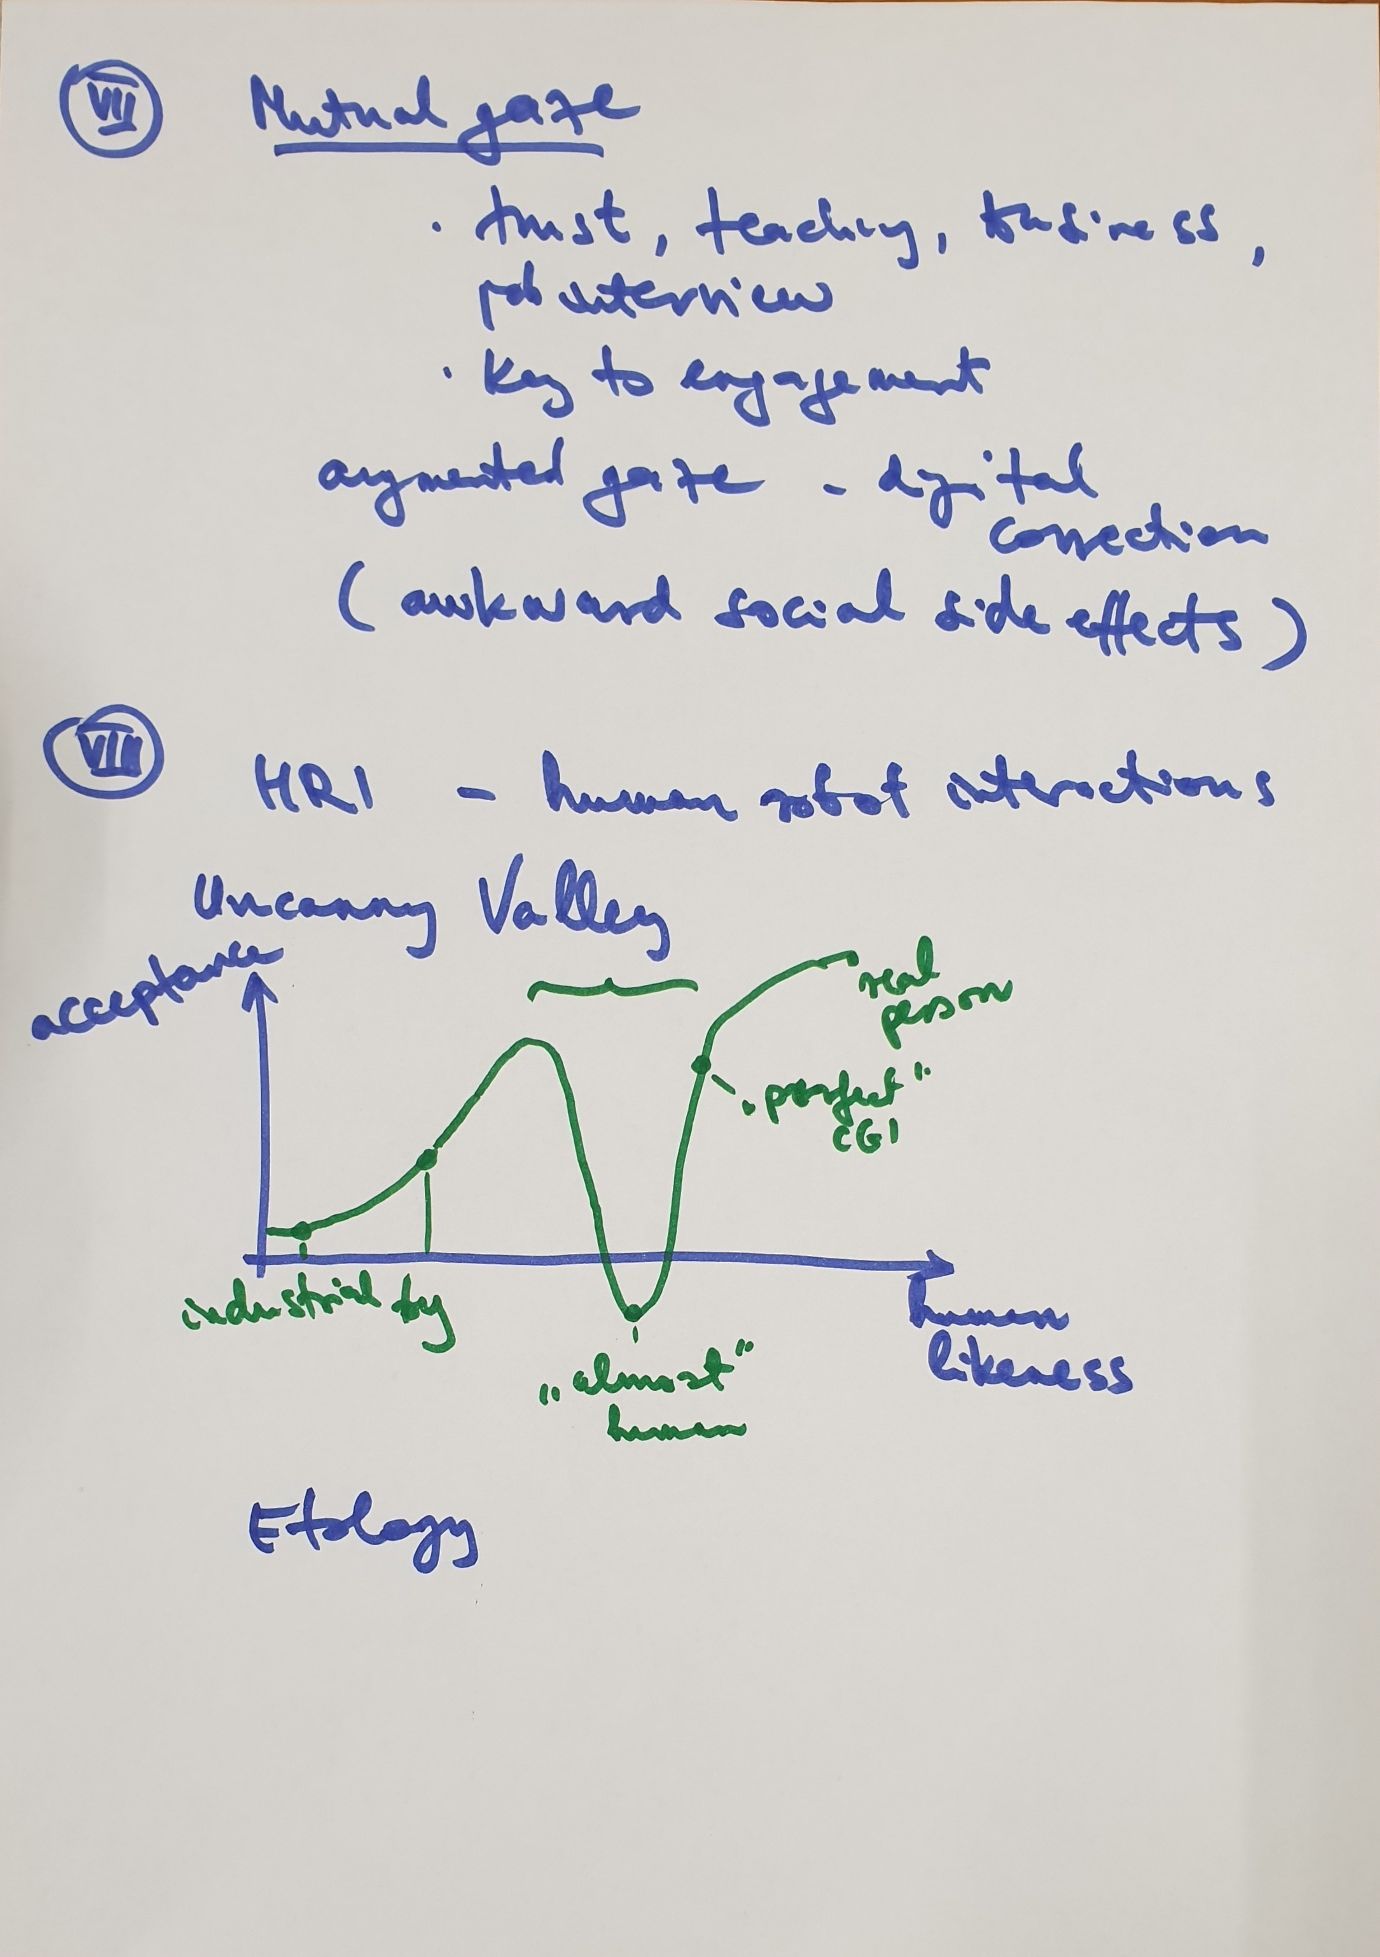 VII Mutual gaze
· trust, teaching, business,
job interview
· key to engagement
augmented gaze - digital
correction
(awkward social side effects)
VIII
HRI - human robot interactions
Uncanny Valley
acceptance
real
person
„perfect"
CGI
industrial toy
human
likeness
„almost"
human
Etology